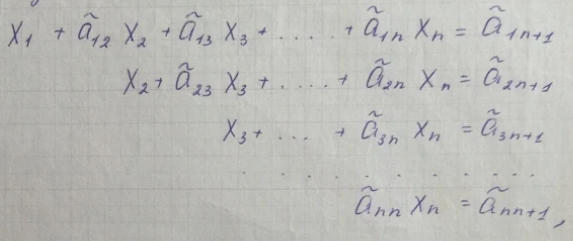 X₁ + ã₁₂ X₂ + ã₁₃ X₃ + .... + ã₁ₙ Xₙ = ã₁ₙ₊₁
X₂ + ã₂₃ X₃ + .... + ã₂ₙ Xₙ = ã₂ₙ₊₁
X₃ + ... + ã₃ₙ Xₙ = ã₃ₙ₊₁
. . . . . . . . . .
ãₙₙ Xₙ = ãₙₙ₊₁,